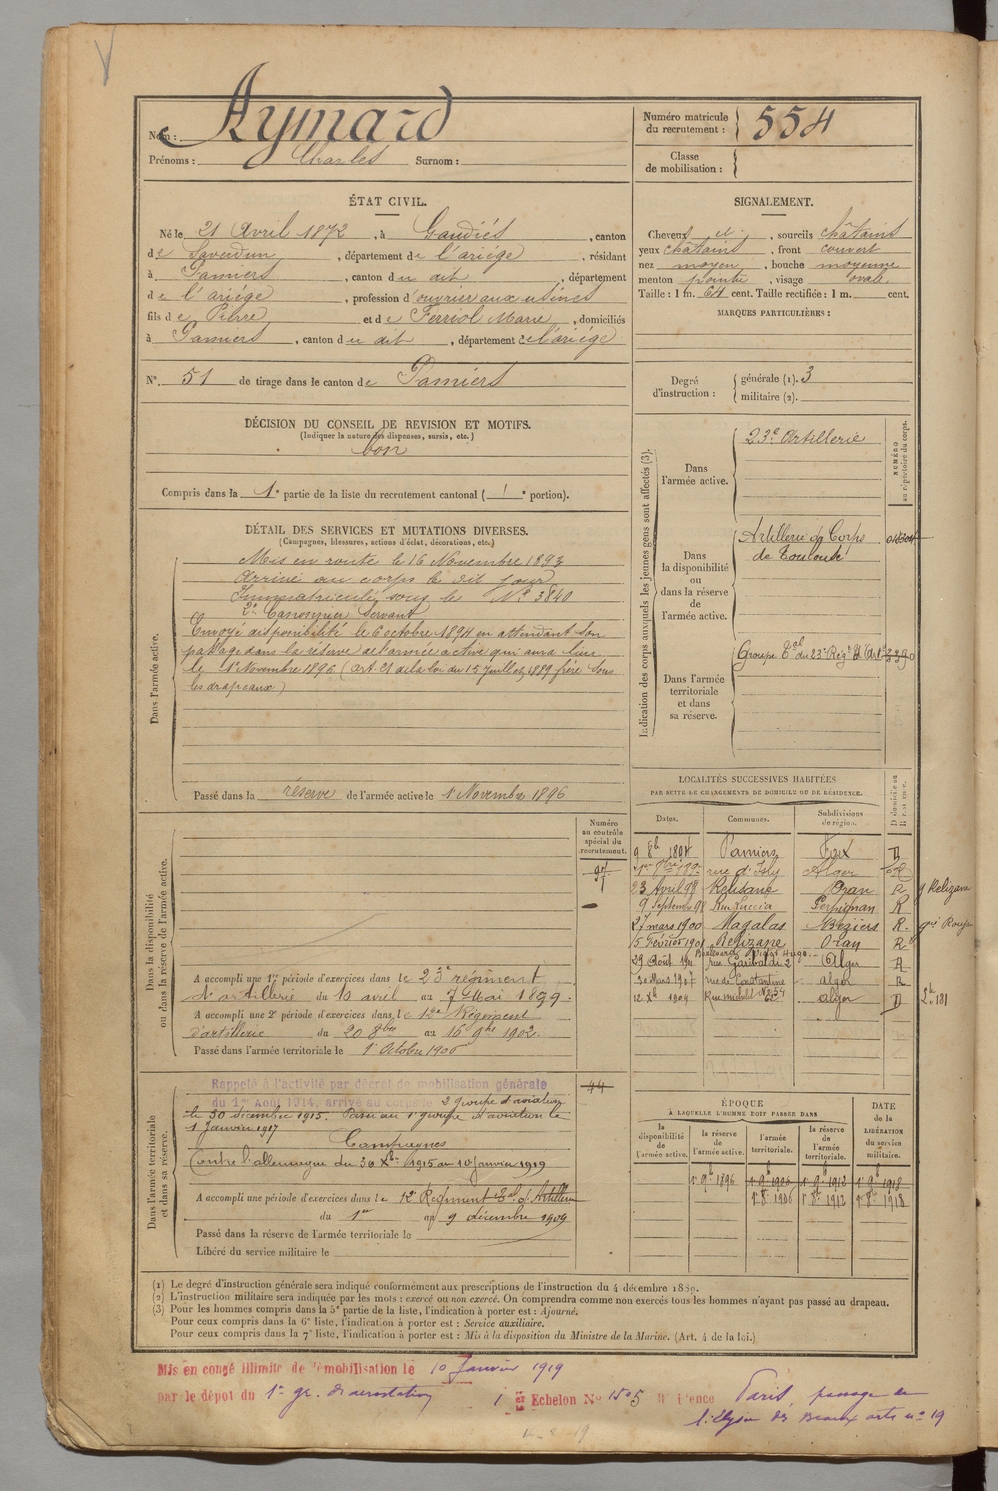 Nom : Aymard
Prénoms : Charles Surnom :
Numéro matricule du recrutement : 554
Classe de mobilisation :
ÉTAT CIVIL.
Né le 21 Avril 1872, à Gaudiés, canton
de Saverdun, département de l'ariége, résidant
à Pamiers, canton du dit, département
de l'ariége, profession d'ouvrier aux usines
fils de Pierre et de Ferriol Marie, domiciliés
à Pamiers, canton du dit, département de l'ariége
N°. 51 de tirage dans le canton de Pamiers
SIGNALEMENT.
Cheveux et, sourcils châtains
yeux chatains, front couvert
nez moyen, bouche moyenne
menton pointu, visage ovale.
Taille : 1 m. 64 cent. Taille rectifiée : 1 m. cent.
MARQUES PARTICULIÈRES :
Degré d'instruction : générale (1). 3
militaire (2).
DÉCISION DU CONSEIL DE REVISION ET MOTIFS.
(Indiquer la nature des dispenses, sursis, etc.)
bon
Compris dans la 1e partie de la liste du recrutement cantonal ( 1e portion).
DÉTAIL DES SERVICES ET MUTATIONS DIVERSES.
(Campagnes, blessures, actions d'éclat, décorations, etc.)
Dans l'armée active.
Mis en route le 16 Novembre 1893
Arrivé au corps le dit jour
Immatriculé sous le N° 3840
2e Canonnier Servant
Envoyé disponibilité le 6 octobre 1894 en attendant son
passage dans la réserve de l'armée active qui aura lieu
le 1er Novembre 1896 (art. 21 de la loi du 15 Juillet 1889 frère sous
les drapeaux)
Passé dans la réserve de l'armée active le 1er Novembre 1896
Indication des corps auxquels les jeunes gens sont affectés (3).
NUMÉRO au répertoire du corps.
Dans l'armée active.
23e Artillerie
Dans la disponibilité ou dans la réserve de l'armée active.
Artillerie du Corps
de Toulouse
Dans l'armée territoriale et dans sa réserve.
Groupe Tal du 23e Régt d'Art
LOCALITÉS SUCCESSIVES HABITÉES
PAR SUITE DE CHANGEMENTS DE DOMICILE OU DE RÉSIDENCE.
Dates. Communes. Subdivisions de région. D domicile ou R résidence.
9 8bre 1894 Pamiers Foix D
rue d'Isly Alger R
23 Avril 98 Relizane Oran R
9 Septembre 98 Perpignan R
27 mars 1900 Magalas Béziers R.
5 Fevrier 1901 Relizane Oran R
Boulevard Victor Hugo.
29 Août rue Garibaldi 2 Alger R
30 Mars 1907 rue de Constantine alger R
12 Xbre 1909 Rue michelet alger D
g Relizan
Dans la disponibilité ou dans la réserve de l'armée active.
Numéro au contrôle spécial du recrutement.
A accompli une 1re période d'exercices dans le 23e régiment
d'artillerie du 10 avril au 7 Mai 1899.
A accompli une 2e période d'exercices dans le 12e Régiment
d'artillerie du 20 8bre au 16 9bre 1902.
Passé dans l'armée territoriale le 1er Octobre 1906
Dans l'armée territoriale et dans sa réserve.
44
Rappelé à l'activité par décret de mobilisation générale
du 1er Août 1914, arrivé au corps le 2 groupe d'aviation
le 30 décembre 1915. Passé au 1er groupe d'aviation le
1 Janvier 1917
Campagnes
Contre l'allemagne du 30 Xbre 1915 au 10 Janvier 1919
A accompli une période d'exercices dans le 12e Régiment Tal d'Artillerie
du 1er au 9 décembre 1909
Passé dans la réserve de l'armée territoriale le
Libéré du service militaire le
ÉPOQUE
À LAQUELLE L'HOMME DOIT PASSER DANS
DATE de la LIBÉRATION du service militaire.
la disponibilité de l'armée active. la réserve de l'armée active. l'armée territoriale. la réserve de l'armée territoriale.
1er 9b 1896 1er 9b 1906 1er 9b 1912 1er 9b 1918
1er 8b 1906 1er 8b 1912 1er 8b 1918
(1) Le degré d'instruction générale sera indiqué conformément aux prescriptions de l'instruction du 4 décembre 1889.
(2) L'instruction militaire sera indiquée par les mots : exercé ou non exercé. On comprendra comme non exercés tous les hommes n'ayant pas passé au drapeau.
(3) Pour les hommes compris dans la 5e partie de la liste, l'indication à porter est : Ajourné.
Pour ceux compris dans la 6e liste, l'indication à porter est : Service auxiliaire.
Pour ceux compris dans la 7e liste, l'indication à porter est : Mis à la disposition du Ministre de la Marine. (Art. 4 de la loi.)
Mis en congé illimité de démobilisation le 10 Janvier 1919
par le dépot du 1er gr. d'aerostation 1er Echelon N° 1505 Paris, passage de
l'élysée des Beaux arts n° 19